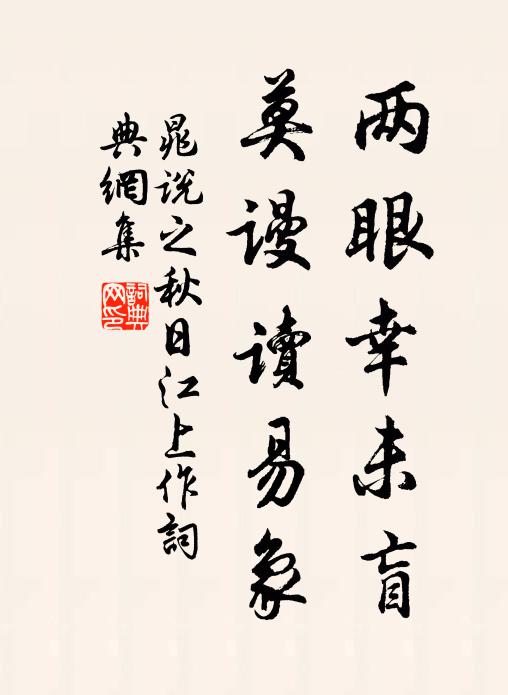 两眼幸未盲
莫谩讀易象
晁说之秋日江上作詞
典網集
詞典
网印